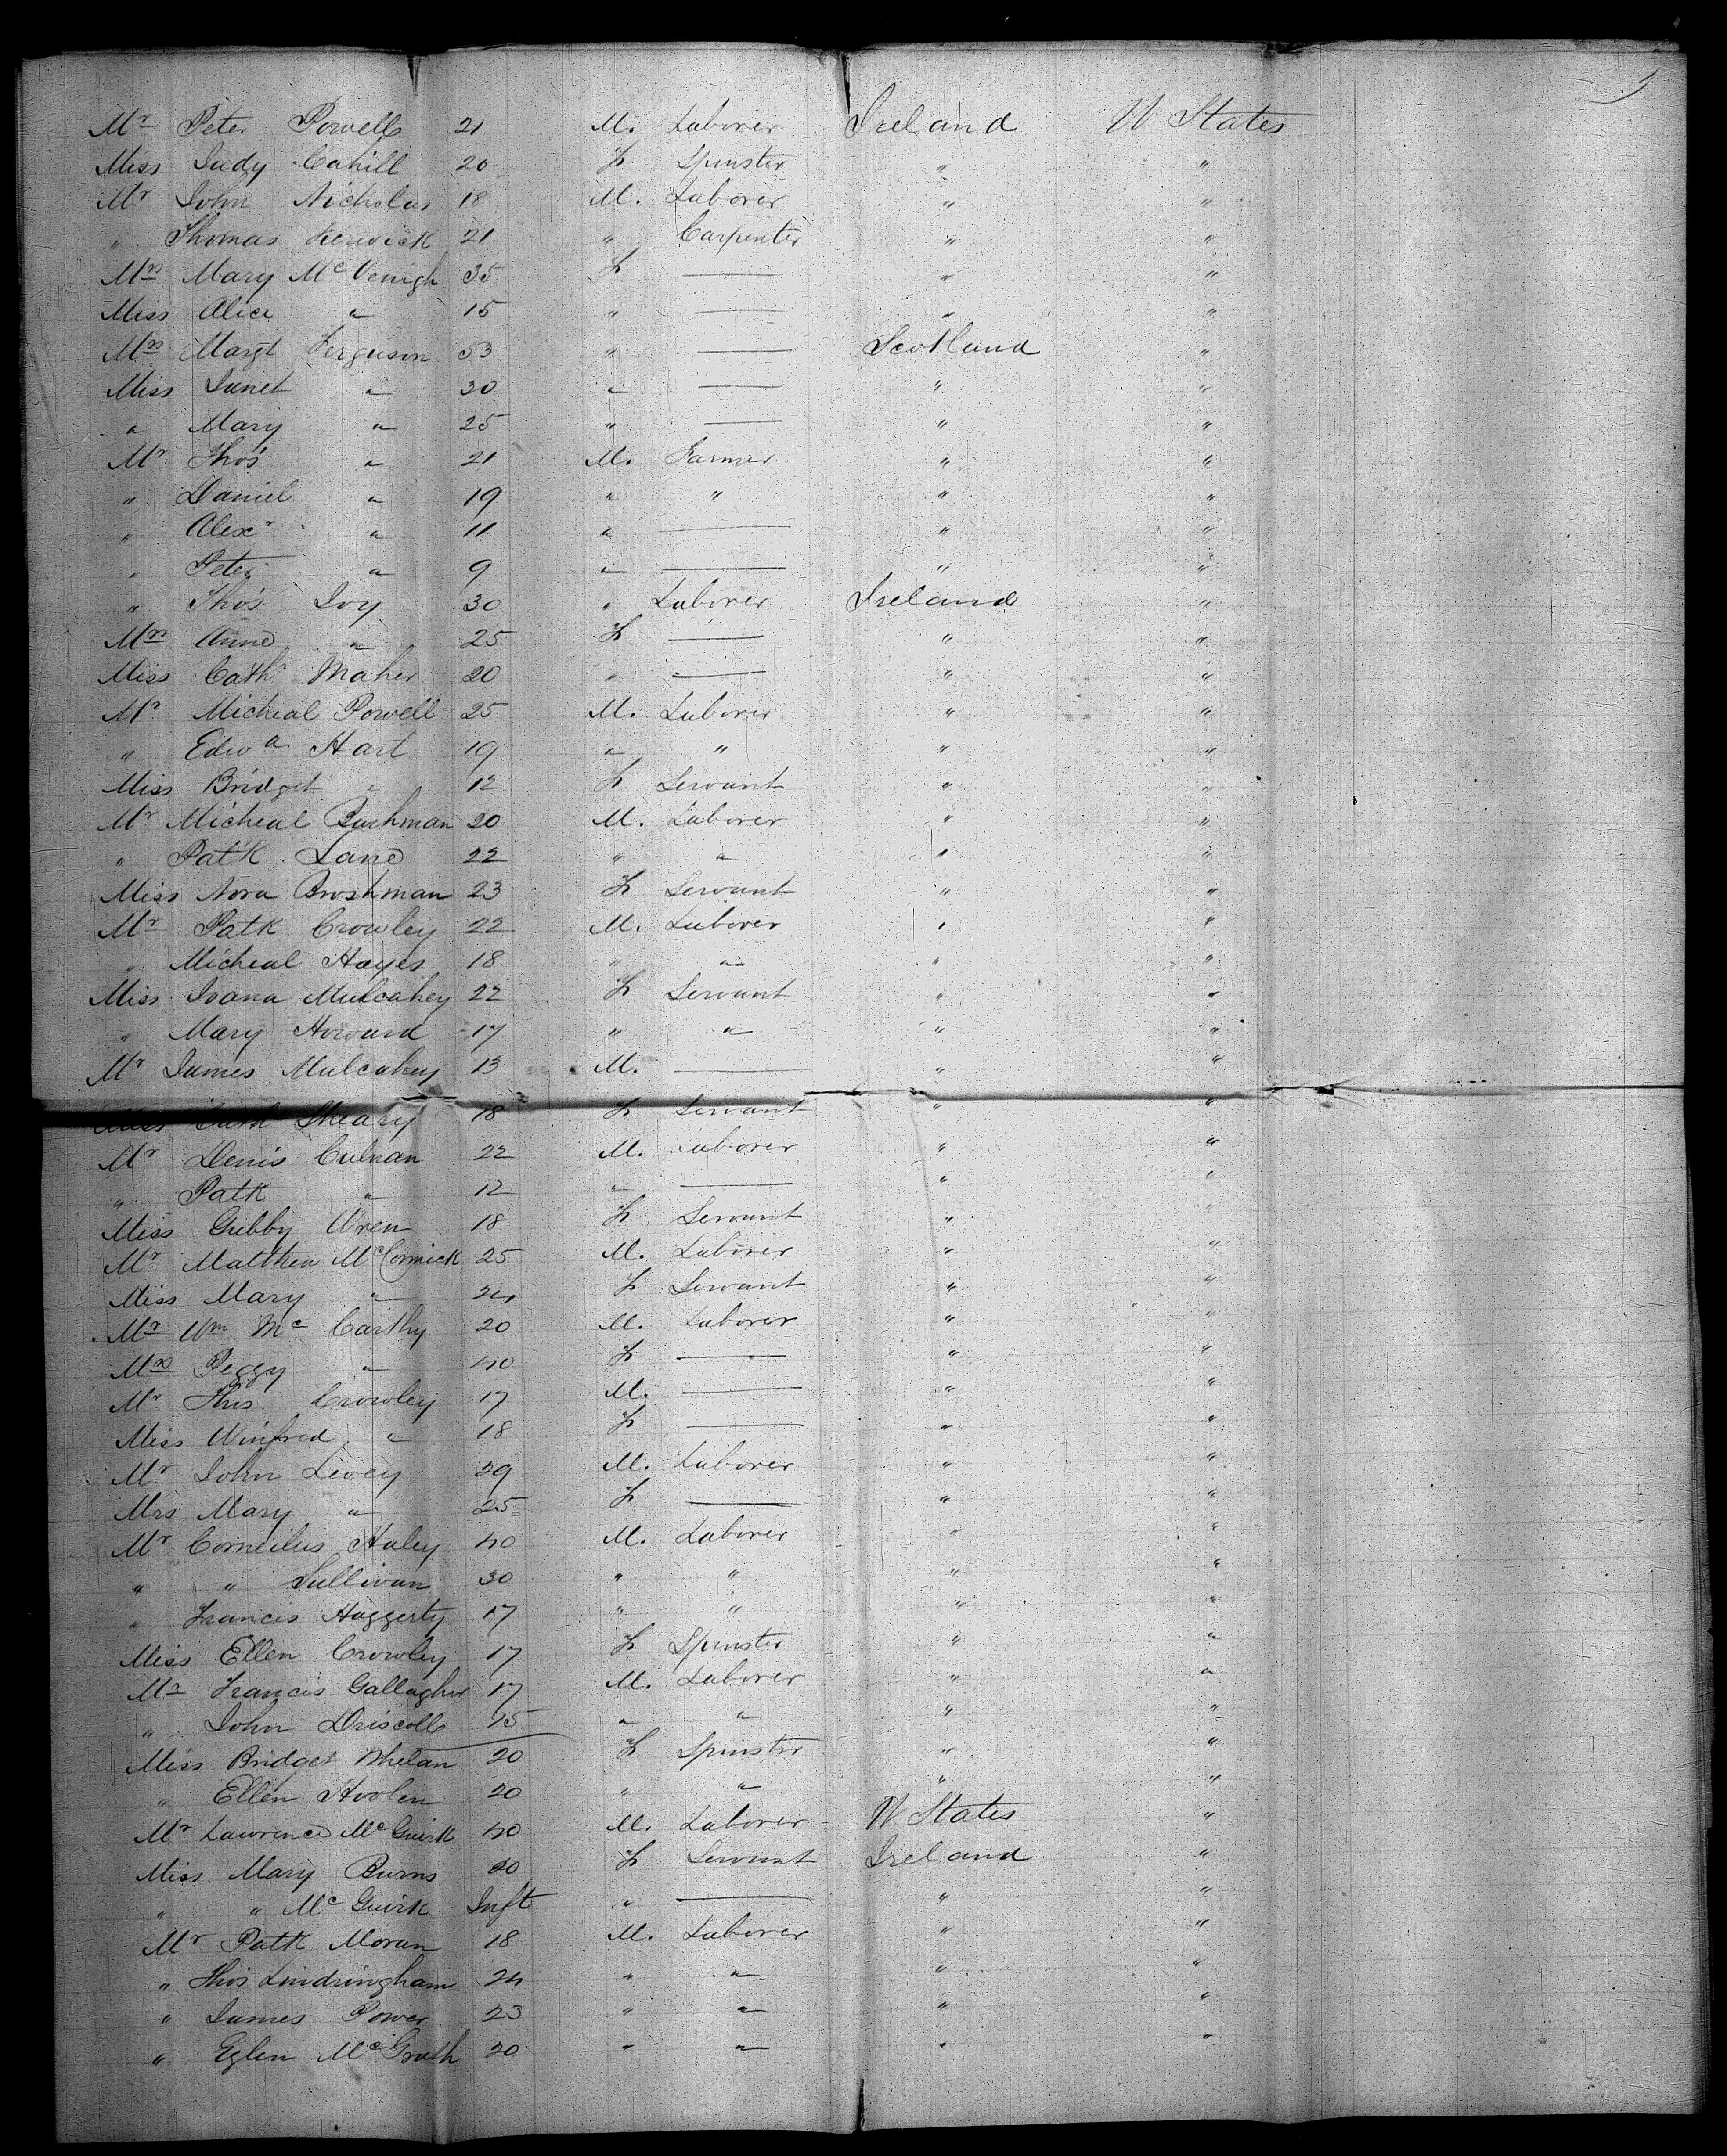 Mr Peter Powell 21 M. Laborer Ireland U States
Miss Judy Cahill 20 F Spinster " "
Mr John Nicholas 18 M. Laborer " "
" Thomas 21 " Carpenter " "
Mrs Mary McVenigh 35 F — " "
Miss Alice " 15 " — " "
Mrs Margt Ferguson 53 " — Scotland "
Miss Janet " 30 " — " "
" Mary " 25 " — " "
Mr Thos " 21 M. Farmer " "
" Daniel " 19 " " " "
" Alexr " 11 " — " "
" Peter " 9 " — " "
" Thos Joy 30 " Laborer Ireland "
Mrs Anne " 25 F — " "
Miss Cathn Maher 20 " — " "
Mr Micheal Powell 25 M. Laborer " "
" Edwd Hart 19 " " " "
Miss Bridget " 12 F Servant " "
Mr Micheal 20 M. Laborer " "
" Patk Lane 22 " " " "
Miss Nora Broshman 23 F Servant " "
Mr Patk Crowley 22 M. Laborer " "
" Micheal Hayes 18 " " " "
Miss Joana Mulcahey 22 F Servant " "
" Mary Howard 17 " " " "
Mr James Mulcahey 13 M. — " "
Miss Sheary 18 F Servant " "
Mr Denis Culnan 22 M. Laborer " "
" Patk " 12 " — " "
Miss Gubby Wren 18 F Servant " "
Mr Matthew McCormick 25 M. Laborer " "
Miss Mary " 24 F Servant " "
Mr Wm McCarthy 20 M. Laborer " "
Mrs Peggy " 40 F — " "
Mr Thos Crowley 17 M. — " "
Miss Winfred " 18 F — " "
Mr John Livey 29 M. Laborer " "
Mrs Mary " 25 F — " "
Mr Cornelius Haley 40 M. Laborer " "
" " Sullivan 30 " " " "
" Francis Haggerty 17 " " " "
Miss Ellen Crowley 17 F Spinster " "
Mr Francis Gallagher 17 M. Laborer " "
" John Driscoll 15 " " " "
Miss Bridget Whelan 20 F Spinster " "
" Ellen Hoolen 20 " " " "
Mr Lawrence McGuirk 40 M. Laborer U States "
Miss Mary Burns 20 F Servant Ireland "
" " McGuirk Inft " — " "
Mr Patk Moran 18 M. Laborer " "
" Thos Lindringham 24 " " " "
" James Power 23 " " " "
" Eglen McGrath 20 " " " "